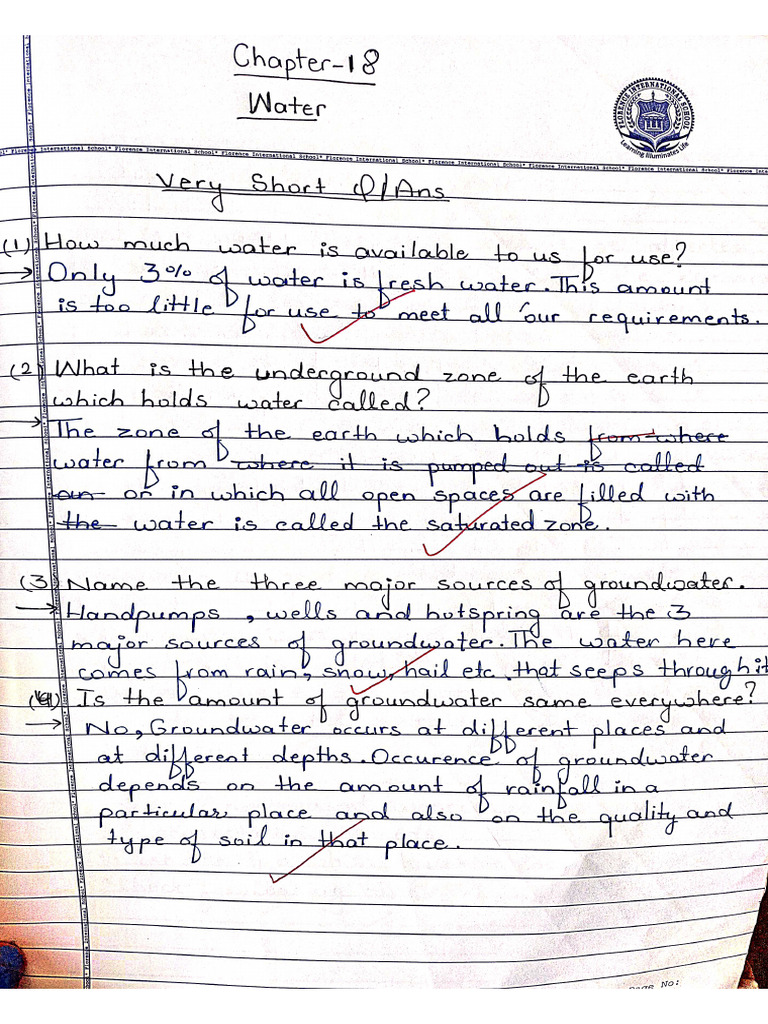 Chapter-18
Water
FLORENCE INTERNATIONAL SCHOOL
Learning Illuminates Life
International School* Florence International School* Florence International School* Florence International School* Florence International School* Florence International School*
Very Short Q/Ans
(1) How much water is available to us for use?
→ Only 3% of water is fresh water. This amount
is too little for use to meet all our requirements.
(2) What is the underground zone of the earth
which holds water called?
→ The zone of the earth which holds from where
water from where it is pumped out is called
an or in which all open spaces are filled with
the water is called the saturated zone.
(3) Name the three major sources of groundwater.
→ Handpumps, wells and hotspring are the 3
major sources of groundwater. The water here
comes from rain, snow, hail etc. that seeps through it
(4) Is the amount of groundwater same everywhere?
→ No, Groundwater occurs at different places and
at different depths. Occurence of groundwater
depends on the amount of rainfall in a
particular place and also on the quality and
type of soil in that place.
Page No: